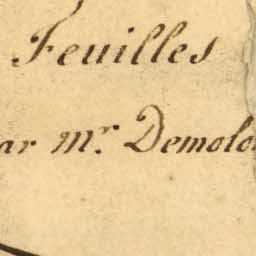 Feuilles
ar Mr. Demolo